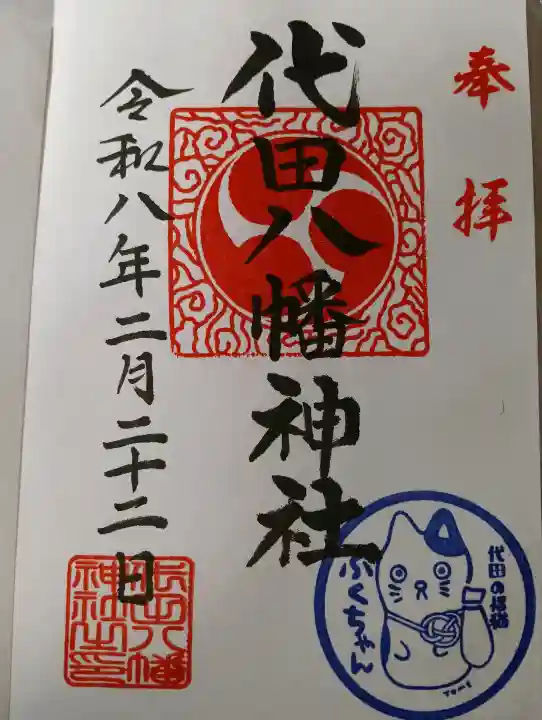 奉拝
代田八幡神社
令和八年二月二十二日
代田の福猫
ふくちゃん
TOME
代田八幡
神社之印